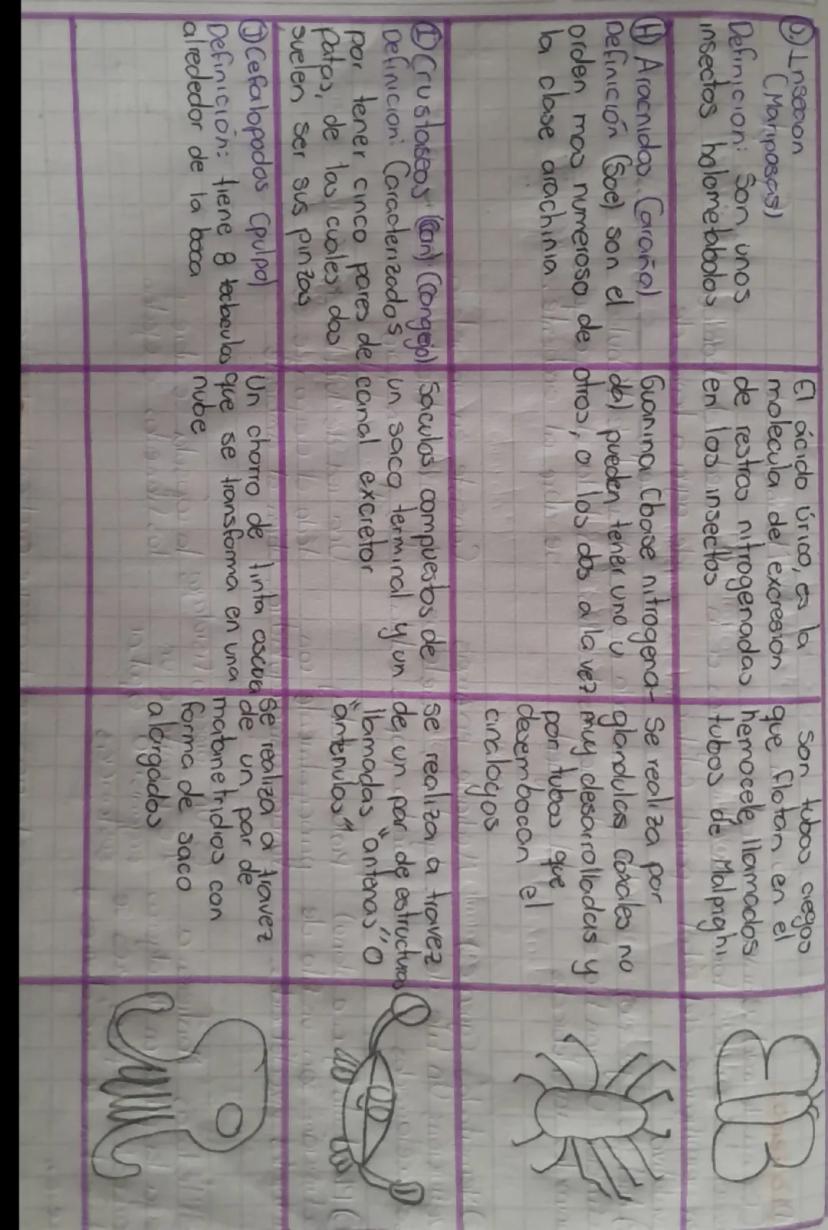 G) Insecion
(Mariposas)
Definicion: Son unos
insectos holometabolos
El ácido úrico, es la
molecula de excresion
de restros nitrogenados
en los insectos
Son tubos ciegos
que flotan en el
hemocele llamados
tubos de Malpighi
H) Aracnidos (araña)
Definición (Sae) son el
orden mas numeroso de
la clase arachinia
Guanina (base nitrogena-
da) pueden tener uno u
otros, o los dos a la vez
Se realiza por
glandulas coxales no
muy desarrolladas y
por tubos que
desembocan el
ciralogos
I) Crustaseos (can) (congejo)
Definicion: Caracterizados
por tener cinco pares de
patas, de las cuales dos
suelen ser sus pinzas
Saculos compuestos de
un saco terminal y un
canal excretor
se realiza a travez
de un par de estructuras
llamadas "antenas" o
"antenulas"
J) Cefalopodos (pulpo)
Definición: tiene 8 tectaculos
alrededor de la boca
Un chorro de tinta oscura
que se transforma en una
nube
Se realiza a travez
de un par de
matanetridios con
forma de saco
alargados